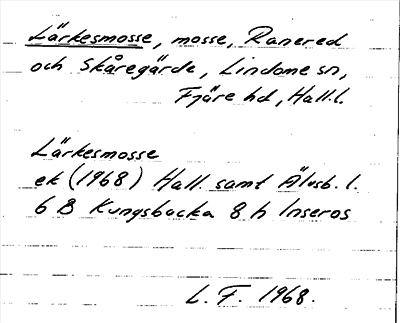 Lärkesmosse, mosse, Ranered
och Skåregärde, Lindome sn,
Fjäre hd, Hall.l.
Lärkesmosse
ek (1968) Hall. samt Älvsb. l.
6 B Kungsbacka 8 h Inseros
L. F. 1968.